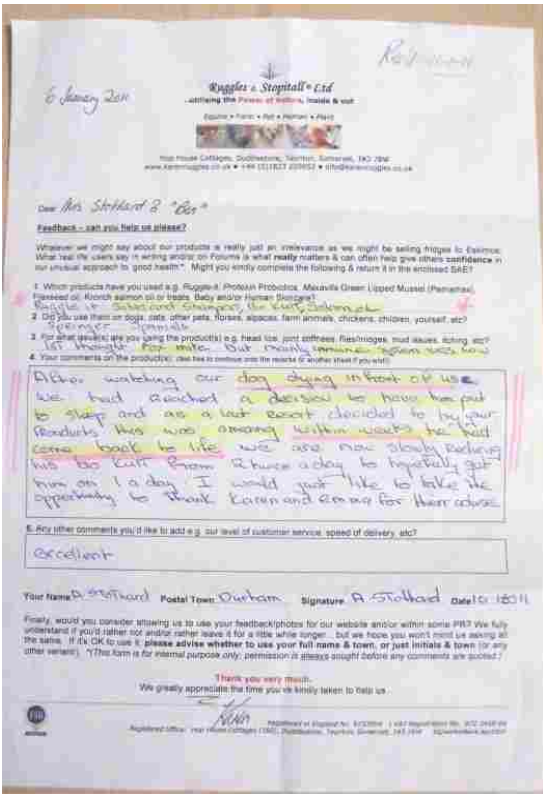 6 January 2011
Ruggles & Stopitall® Ltd
..utilising the Power of Nature, inside & out
Equine • Farm • Pet • Human • Plant
Cottages, Taunton, Somerset, TA3 7BW
Dear Mrs Stothard & "Ben"
Feedback – can you help us please?
Whatever we might say about our products is really just an irrelevance as we might be selling fridges to Eskimos.
What real life users say in writing and/or on Forums is what really matters & can often help give others confidence in
our unusual approach to good health". Might you kindly complete the following & return it in the enclosed SAE?
1. Which products have you used e.g. Ruggle-it, Protexin Probiotics, Maxavita Green Lipped Mussel (Pernamax),
Flaxseed oil, Kronch salmon oil or treats, Baby and/or Human Skincare?
Ruggle it Salve and Shampoo
2. Do you use them on dogs, cats, other pets, horses, alpacas, farm animals, chickens, children, yourself, etc?
Springer Spaniels
3. For what issue(s) are you using the product(s) e.g. head lice, joint stiffness, flies/midges, mud issues, itching, etc?
1st thought Fox mite but mainly immune system was low
4. Your comments on the product(s)
After watching our dog dying infront of us
we had reached a decision to have him put
to sleep and as a last resort decided to try your
Products this was amazing within weeks he had
come back to life we are now slowly reducing
his from 2 twice a day to hopefully get
him on 1 a day I would just like to take the
opportunity to thank Karen and Emma for their advise
5. Any other comments you'd like to add e.g. our level of customer service, speed of delivery, etc?
excellent
Your Name A Stothard Postal Town Durham Signature A Stothard Date
Finally, would you consider allowing us to use your feedback/photos for our website and/or within some PR? We fully
understand if you'd rather not and/or rather leave it for a little while longer... but we hope you won't mind us asking all
the same. If it's OK to use it, please advise whether to use your full name & town, or just initials & town (or any
other variant). *(This form is for internal purpose only; permission is always sought before any comments are quoted.)
Thank you very much.
We greatly appreciate the time you've kindly taken to help us.
Karen